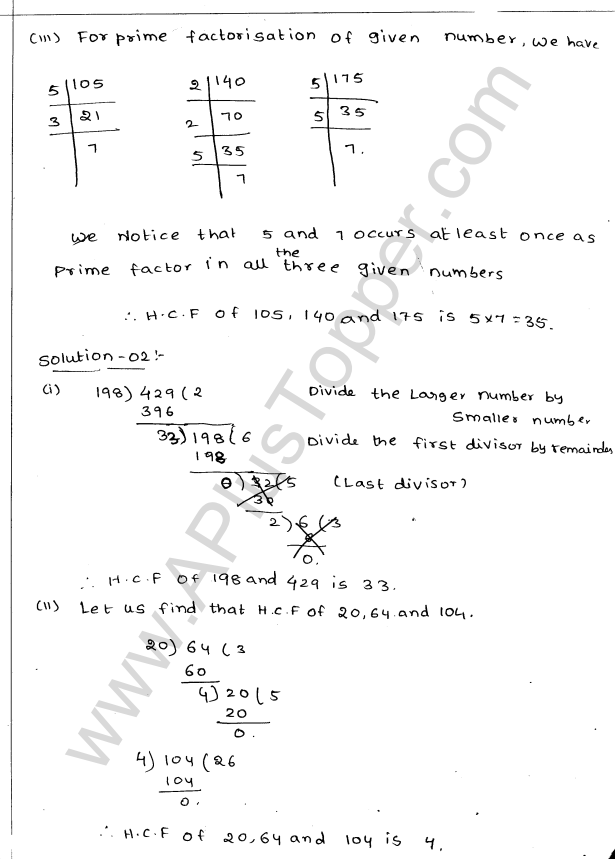 (iii) For prime factorisation of given number, we have
5 | 105 2 | 140 5 | 175
3 | 21 2 | 70 5 | 35
7 5 | 35 7.
7
We Notice that 5 and 7 occurs at least once as
Prime factor in all the three given numbers
∴ H.C.F of 105, 140 and 175 is 5×7=35.
Solution-02:-
(i) 198) 429 ( 2 Divide the Larger number by
396 Smaller number
33) 198 ( 6 Divide the first divisor by remainder
198
0 ) 32 ( 5 (Last divisor)
30
2 ) 6 ( 3
0.
∴ H.C.F of 198 and 429 is 33.
(ii) Let us find that H.C.F of 20, 64 and 104.
20) 64 ( 3
60
4) 20 ( 5
20
0.
4) 104 ( 26
104
0.
∴ H.C.F of 20, 64 and 104 is 4.
www.APlusTopper.com